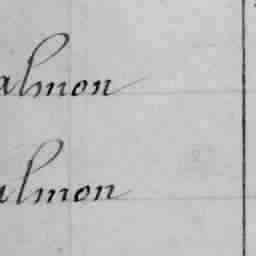 almon
almon